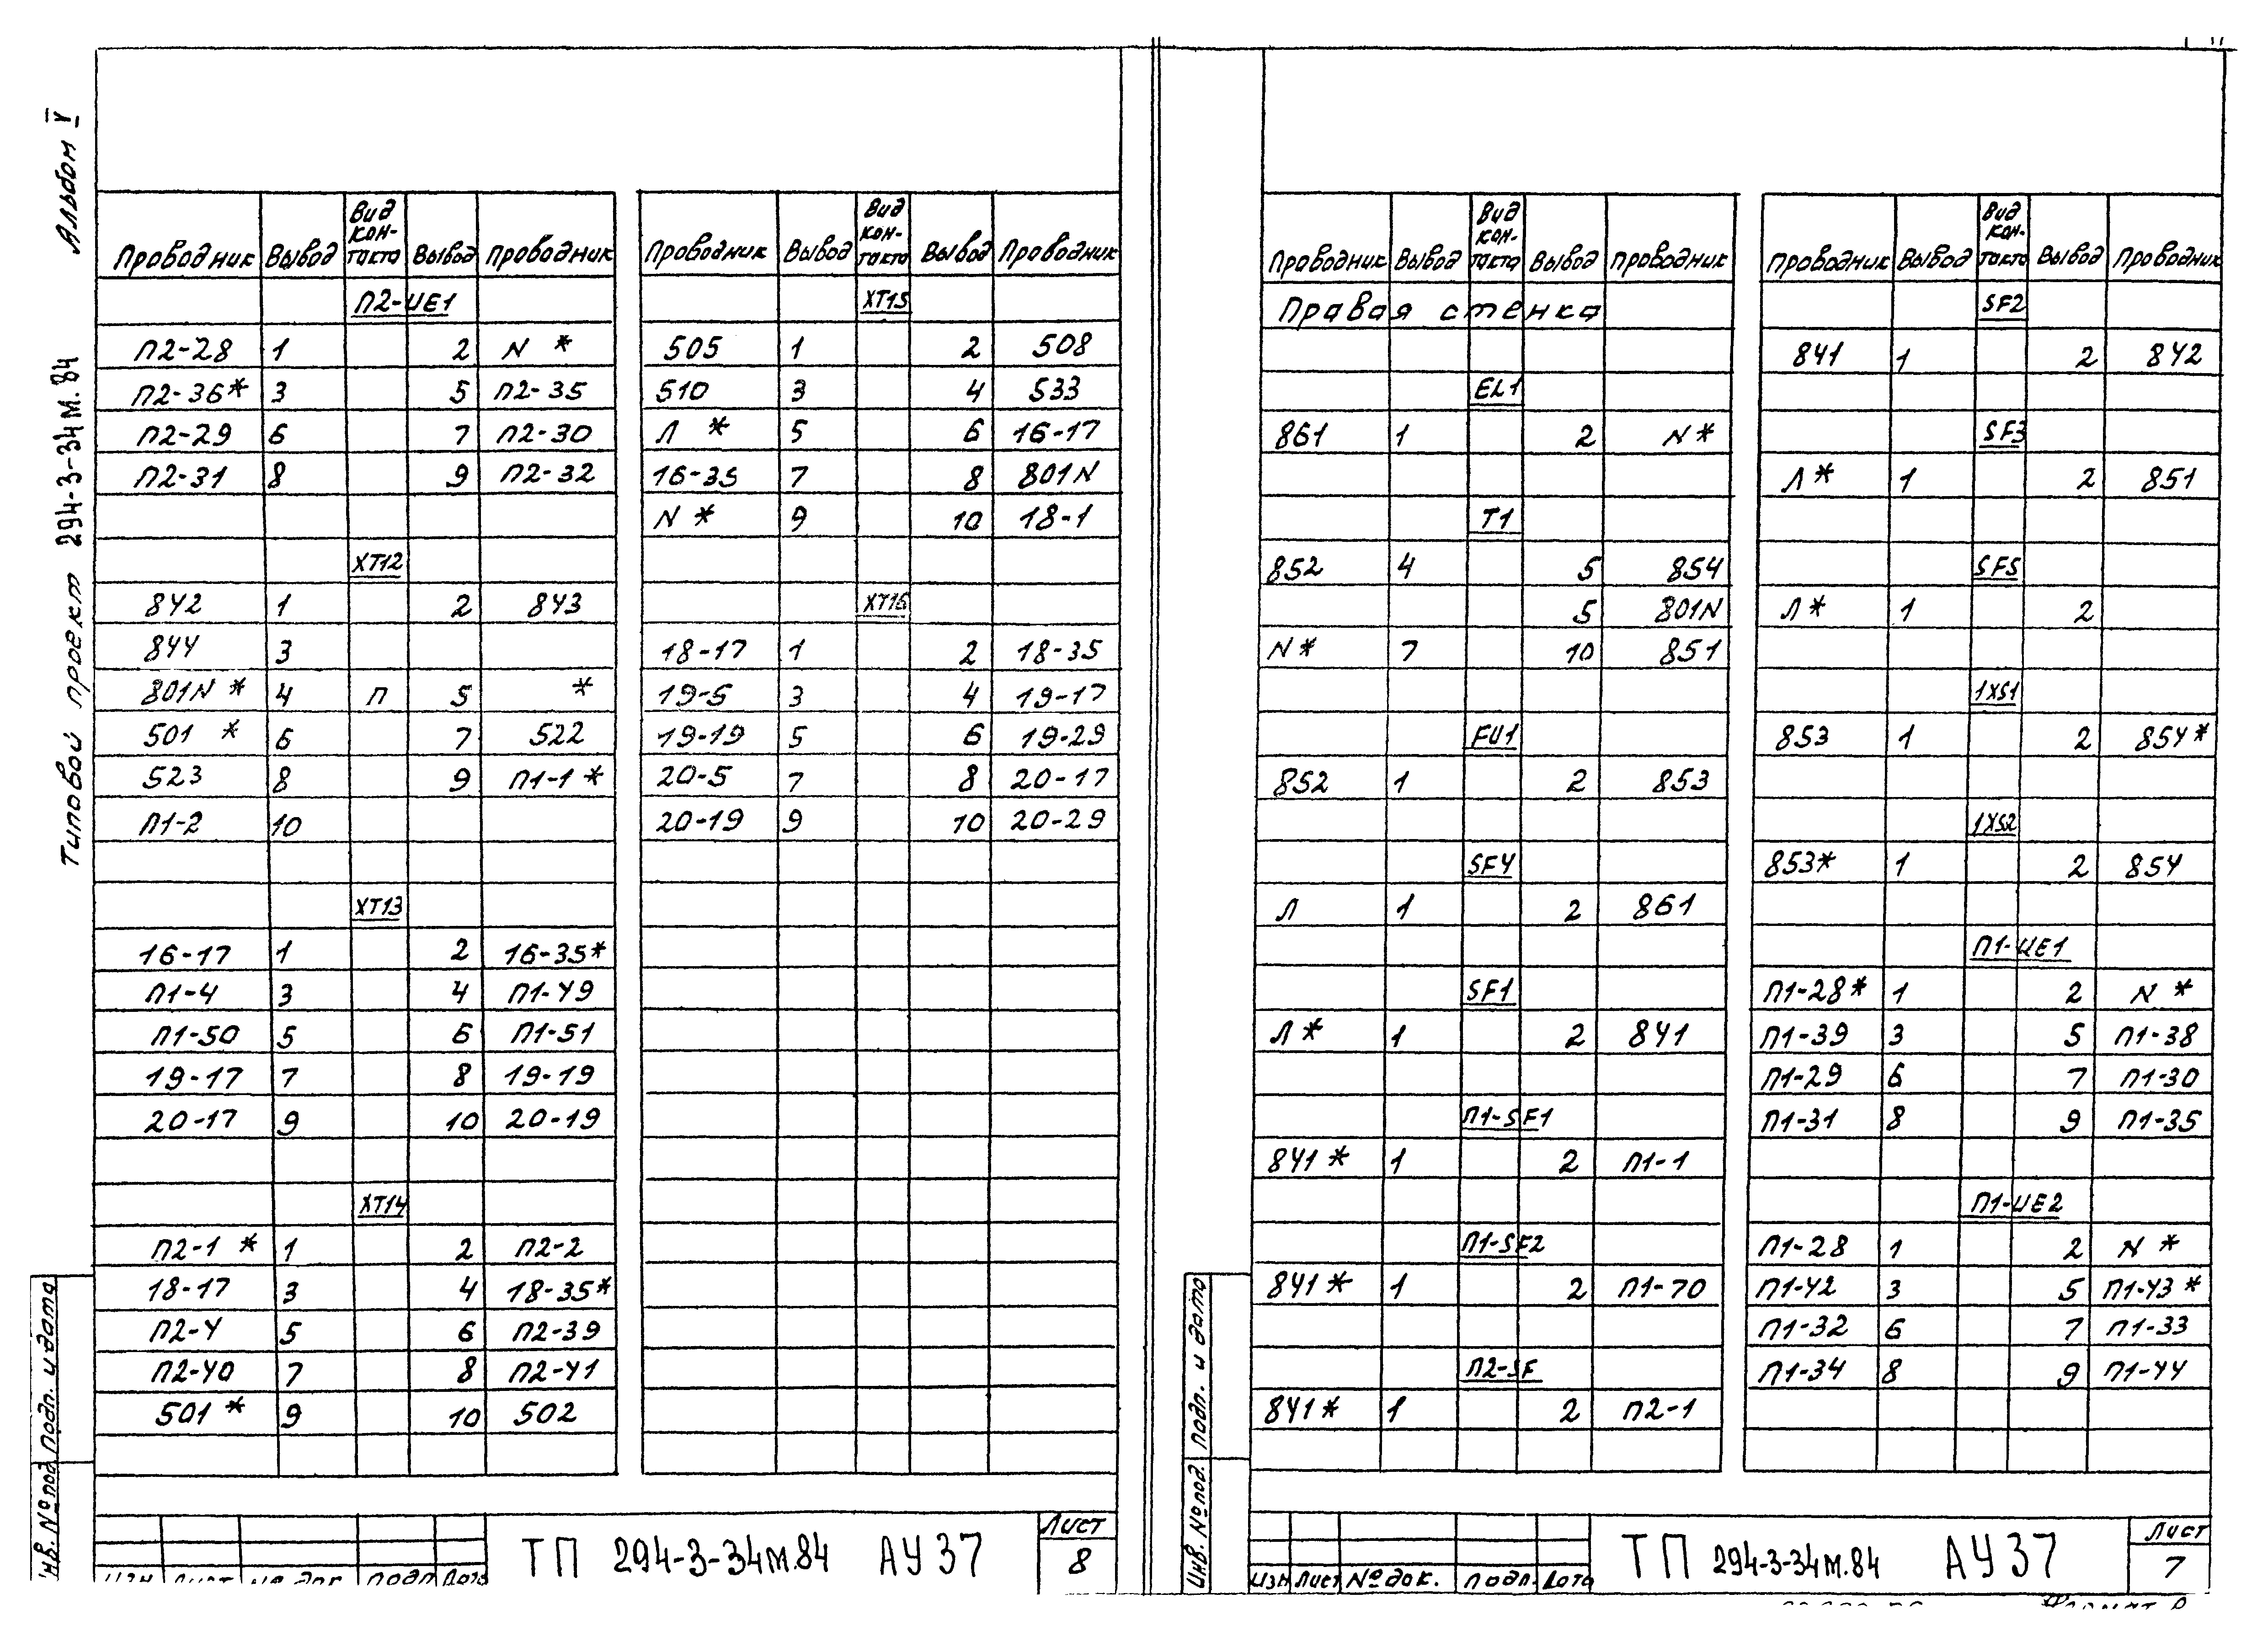 Альбом V
Типовой проект 294-3-34м.84
Проводник Вывод Вид кон-такта Вывод Проводник
П2-UE1
П2-28 1 2 N *
П2-36* 3 5 П2-35
П2-29 6 7 П2-30
П2-31 8 9 П2-32
XT12
842 1 2 843
844 3
801N * 4 П 5 *
501 * 6 7 522
523 8 9 П1-1 *
П1-2 10
XT13
16-17 1 2 16-35*
П1-4 3 4 П1-49
П1-50 5 6 П1-51
19-17 7 8 19-19
20-17 9 10 20-19
XT14
П2-1 * 1 2 П2-2
18-17 3 4 18-35*
П2-4 5 6 П2-39
П2-40 7 8 П2-41
501 * 9 10 502
Проводник Вывод Вид кон-такта Вывод Проводник
XT15
505 1 2 508
510 3 4 533
Л * 5 6 16-17
16-35 7 8 801N
N * 9 10 18-1
XT16
18-17 1 2 18-35
19-5 3 4 19-17
19-19 5 6 19-29
20-5 7 8 20-17
20-19 9 10 20-29
Инв. № под. Подп. и дата
Изм Лист № док. Подп. Дата
ТП 294-3-34м.84 АУ37
Лист
8
Проводник Вывод Вид кон-такта Вывод Проводник
Правая стенка
EL1
861 1 2 N *
T1
852 4 5 854
5 801N
N * 7 10 851
FU1
852 1 2 853
SF4
Л 1 2 861
SF1
Л * 1 2 841
П1-SF1
841 * 1 2 П1-1
П1-SF2
841 * 1 2 П1-70
П2-SF
841 * 1 2 П2-1
Проводник Вывод Вид кон-такта Вывод Проводник
SF2
841 1 2 842
SF3
Л * 1 2 851
SF5
Л * 1 2
1XS1
853 1 2 854 *
1XS2
853* 1 2 854
П1-UE1
П1-28 * 1 2 N *
П1-39 3 5 П1-38
П1-29 6 7 П1-30
П1-31 8 9 П1-35
П1-UE2
П1-28 1 2 N *
П1-42 3 5 П1-43 *
П1-32 6 7 П1-33
П1-34 8 9 П1-44
Инв. № под. Подп. и дата
Изм Лист № док. Подп. Дата
ТП 294-3-34м.84 АУ37
Лист
7